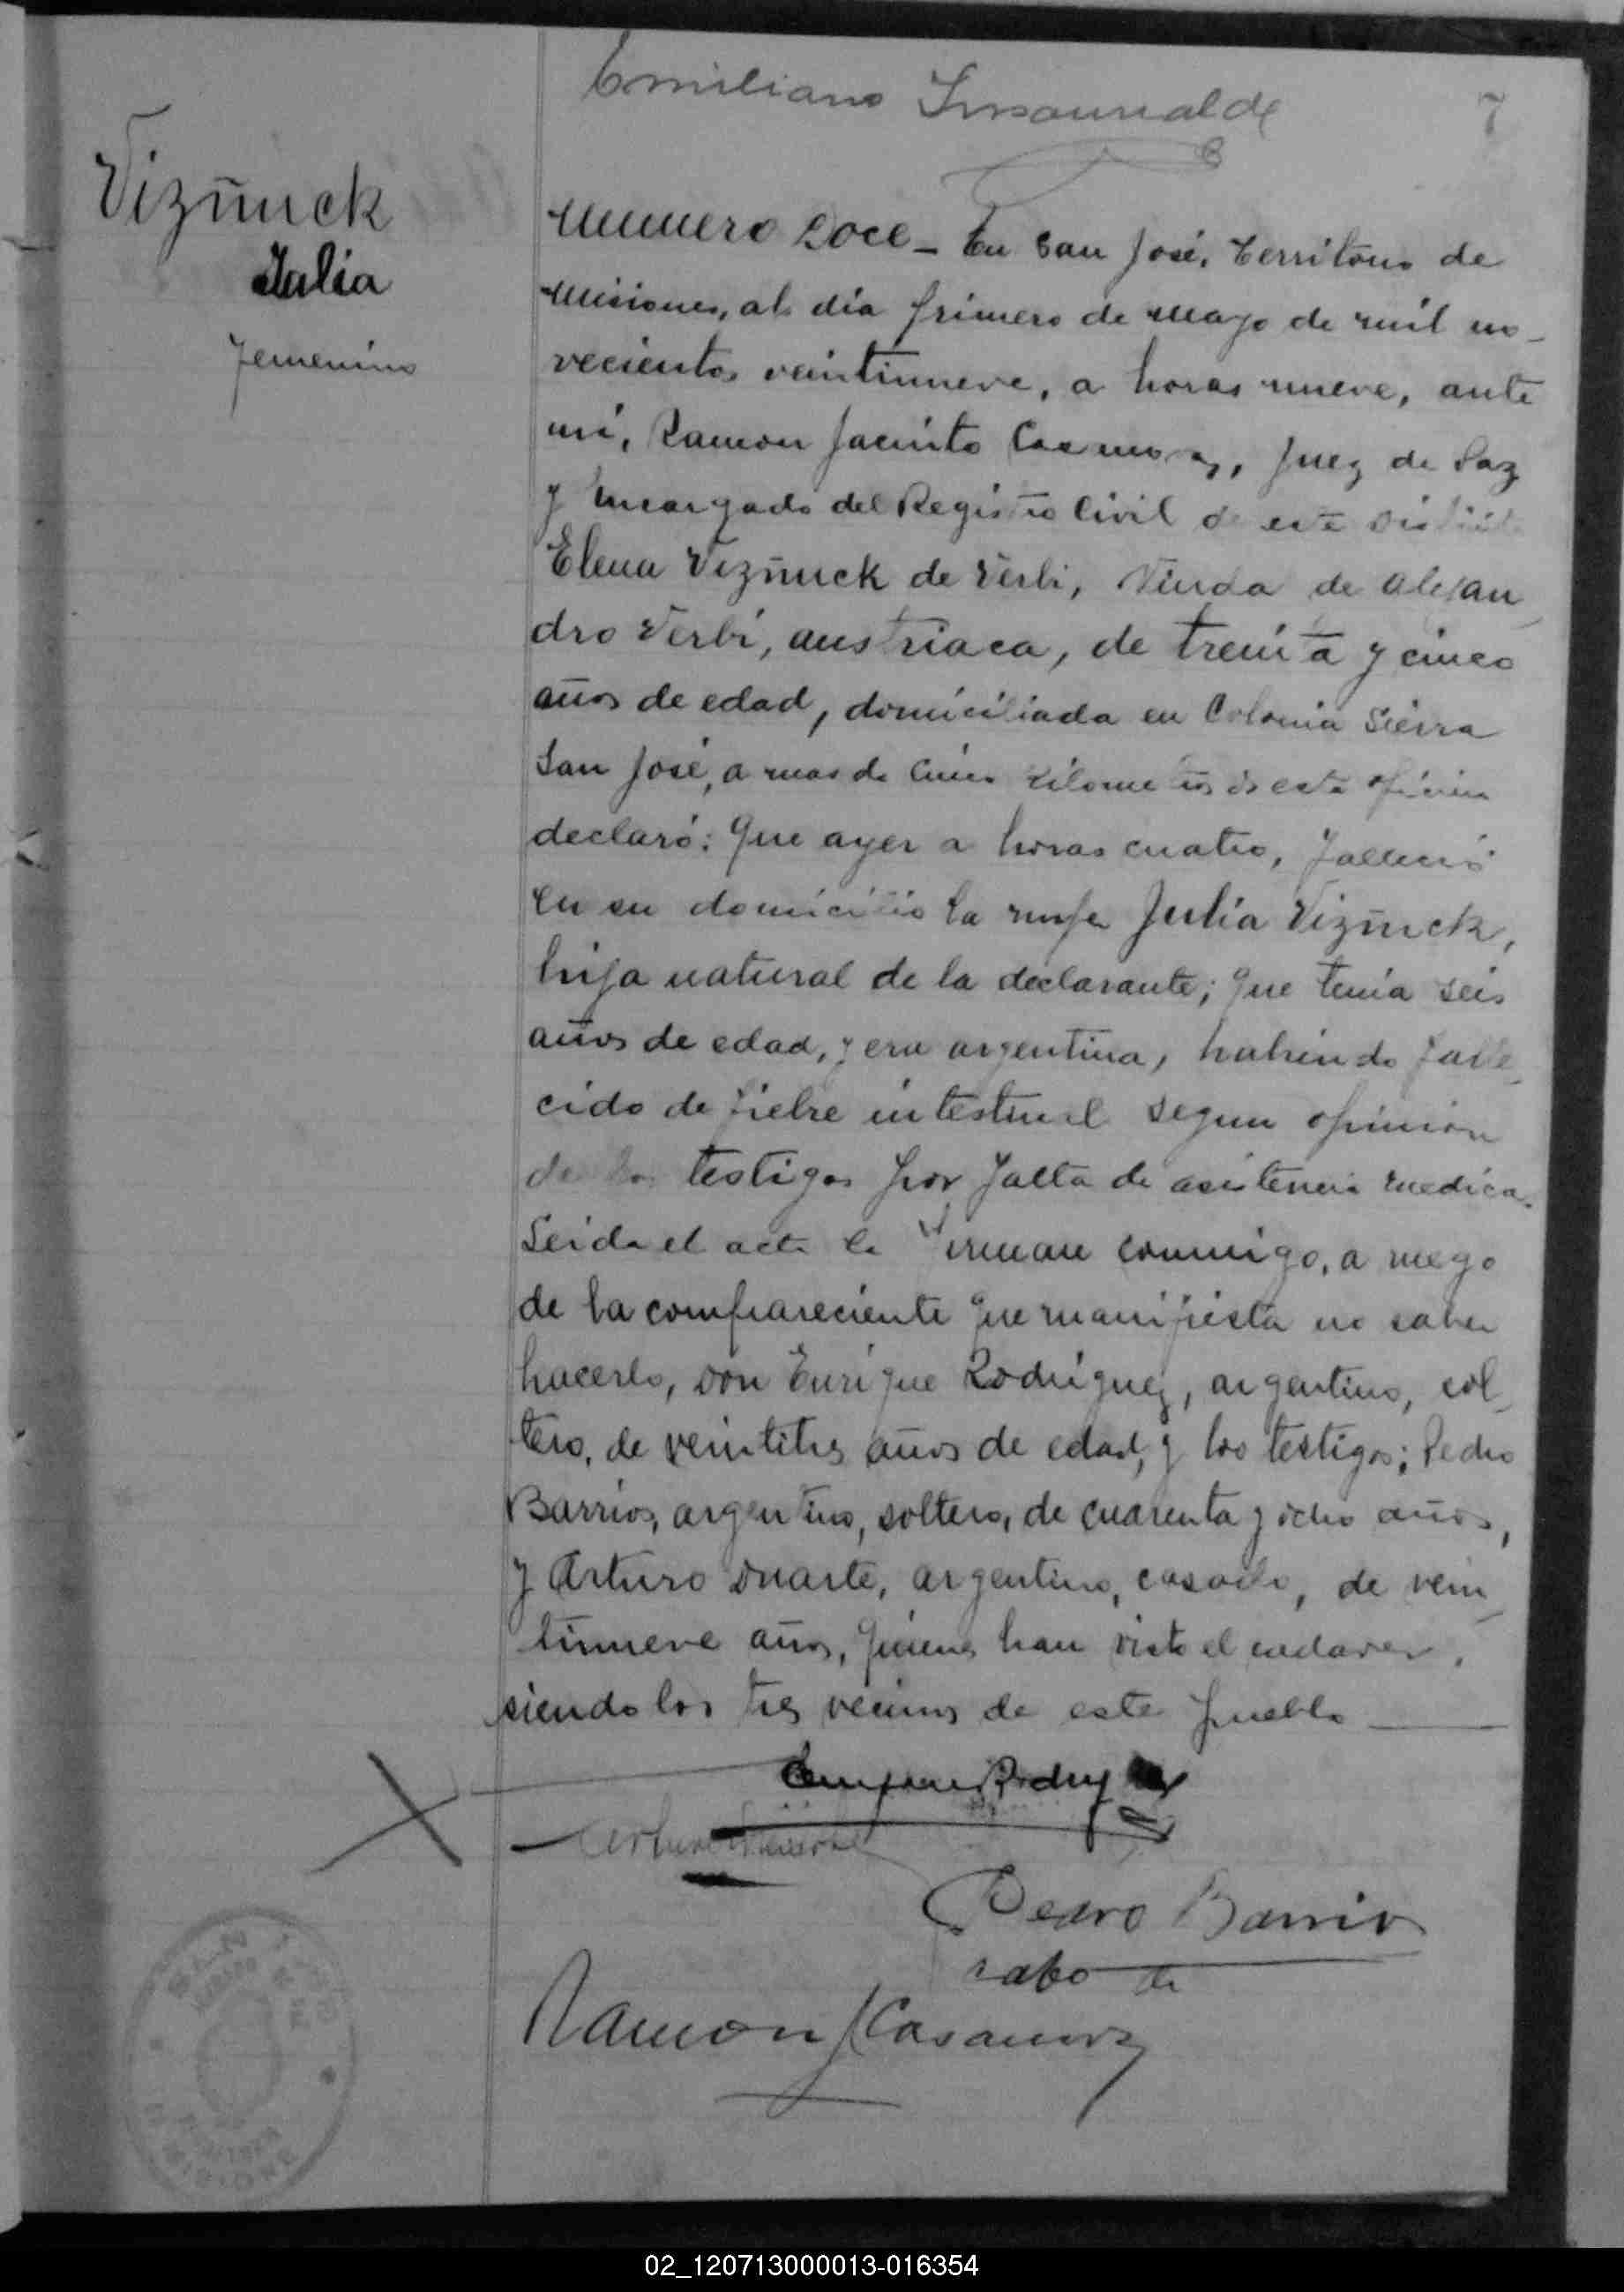 Emiliano Insaurralde
7
Vizñuck
Julia
Femenino
Numero Doce – En San José, Territorio de
Misiones, al dia primero de Mayo de mil no-
vecientos veintinueve, a horas nueve, ante
mi, Ramon Jacinto Casanova, Juez de Paz
y Encargado del Registro Civil de este Distrito
Elena Vizñuck de Verbi, Viuda de Alejan-
dro Verbi, austriaca, de treinta y cinco
años de edad, domiciliada en Colonia Sierra
San José, a mas de cinco kilometros de esta oficina
declaró: Que ayer a horas cuatro, falleció
en su domicilio la mujer Julia Vizñuck,
hija natural de la declarante; que tenia seis
años de edad, y era argentina, habiendo falle-
cido de fiebre intestinal segun opinion
de los testigos por falta de asistencia medica.
Leida el acta la firman conmigo, a ruego
de la compareciente que manifiesta no saber
hacerlo, Don Enrique Rodriguez, argentino, sol-
tero, de veintitres años de edad, y los testigos: Pedro
Barrios, argentino, soltero, de cuarenta y ocho años,
y Arturo Duarte, argentino, casado, de vein-
tinueve años, quienes han visto el cadaver,
siendo los tres vecinos de este pueblo
Enrique Rodrigez
Arturo Duarte
Pedro Barrio
Ramon J Casanova
SAN JOSE
MISIONES
02_120713000013-016354